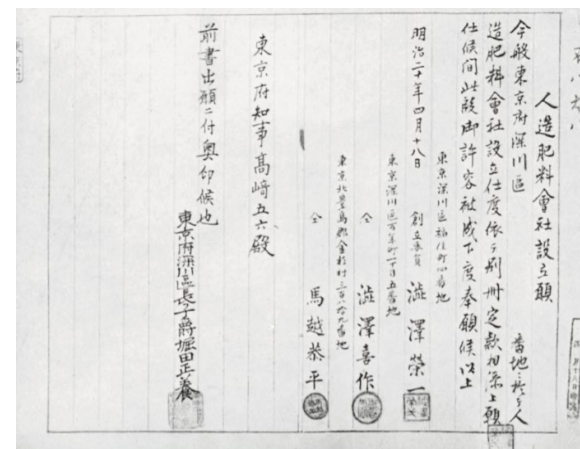 人造肥料會社設立願
今般東京府深川區　番地ニ於テ人
造肥料會社設立仕度依テ別冊定款相添上願
仕候間此段御許容被成下度奉願候以上
東京深川區福住町四番地
明治二十年四月十八日　創立委員　澁澤榮一
東京深川區万年町一丁目五番地
仝　澁澤喜作
東京北豊島郡金杉村三百八拾九番地
仝　馬越恭平
東京府知事髙﨑五六殿
前書出願ニ付奥印候也
東京府深川區長子爵堀田正養